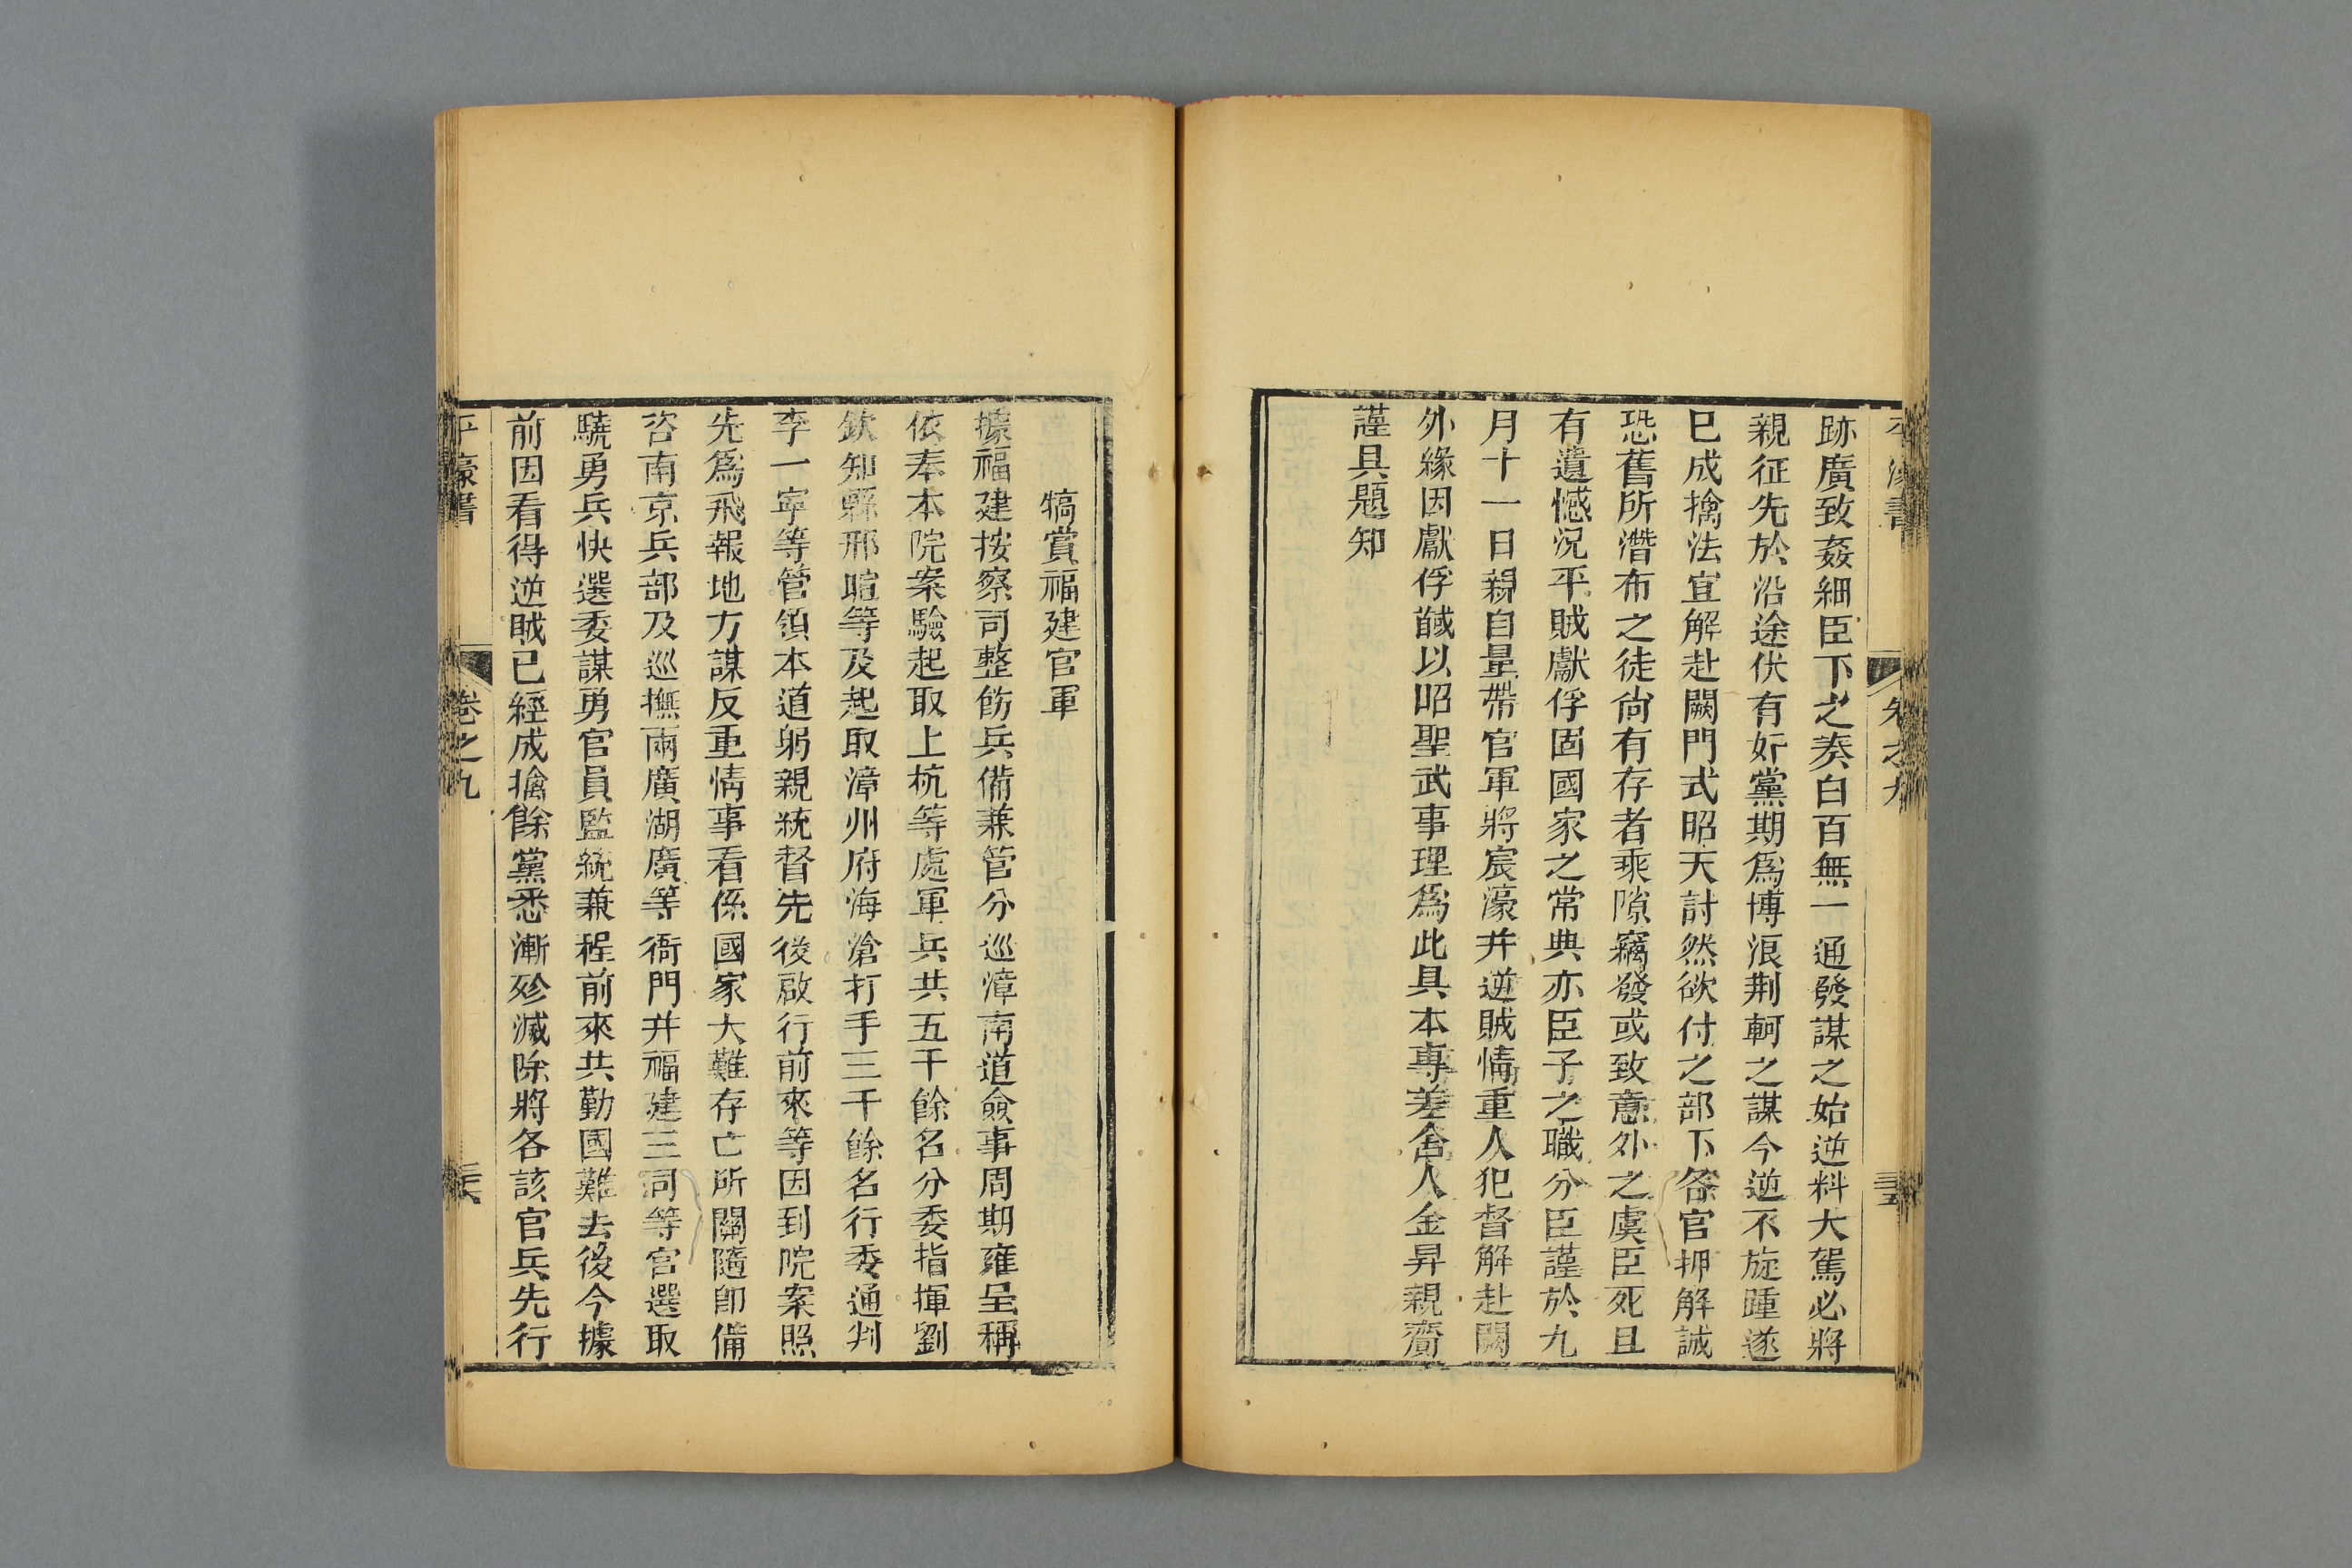 平濠書 卷之九 三五
跡廣致姦細臣下之奏白百無一通發謀之始逆料大駕必將
親征先於沿途伏有奸黨期爲博浪荆軻之謀今逆不旋踵遂
已成擒法宜解赴闕門式昭天討然欲付之部下各官押解誠
恐舊所潛布之徒尚有存者乘隙竊發或致意外之虞臣死且
有遺憾況平賊獻俘固國家之常典亦臣子之職分臣謹於九
月十一日親自量帶官軍將宸濠并逆賊情重人犯督解赴闕
外緣因獻俘馘以昭聖武事理爲此具本專差舍人金昇親齎
謹具題知
犒賞福建官軍
據福建按察司整飭兵備兼管分巡漳南道僉事周期雍呈稱
依奉本院案驗起取上杭等處軍兵共五千餘名分委指揮劉
欽知縣邢暄等及起取漳州府海滄打手三千餘名行委通判
李一寧等管領本道躬親統督先後啟行前來等因到院案照
先爲飛報地方謀反重情事看係國家大難存亡所關隨卽備
咨南京兵部及巡撫兩廣湖廣等衙門并福建三司等官選取
驍勇兵快選委謀勇官員監統兼程前來共勤國難去後今據
前因看得逆賊已經成擒餘黨悉漸殄滅除將各該官兵先行
平濠書 卷之九 三六